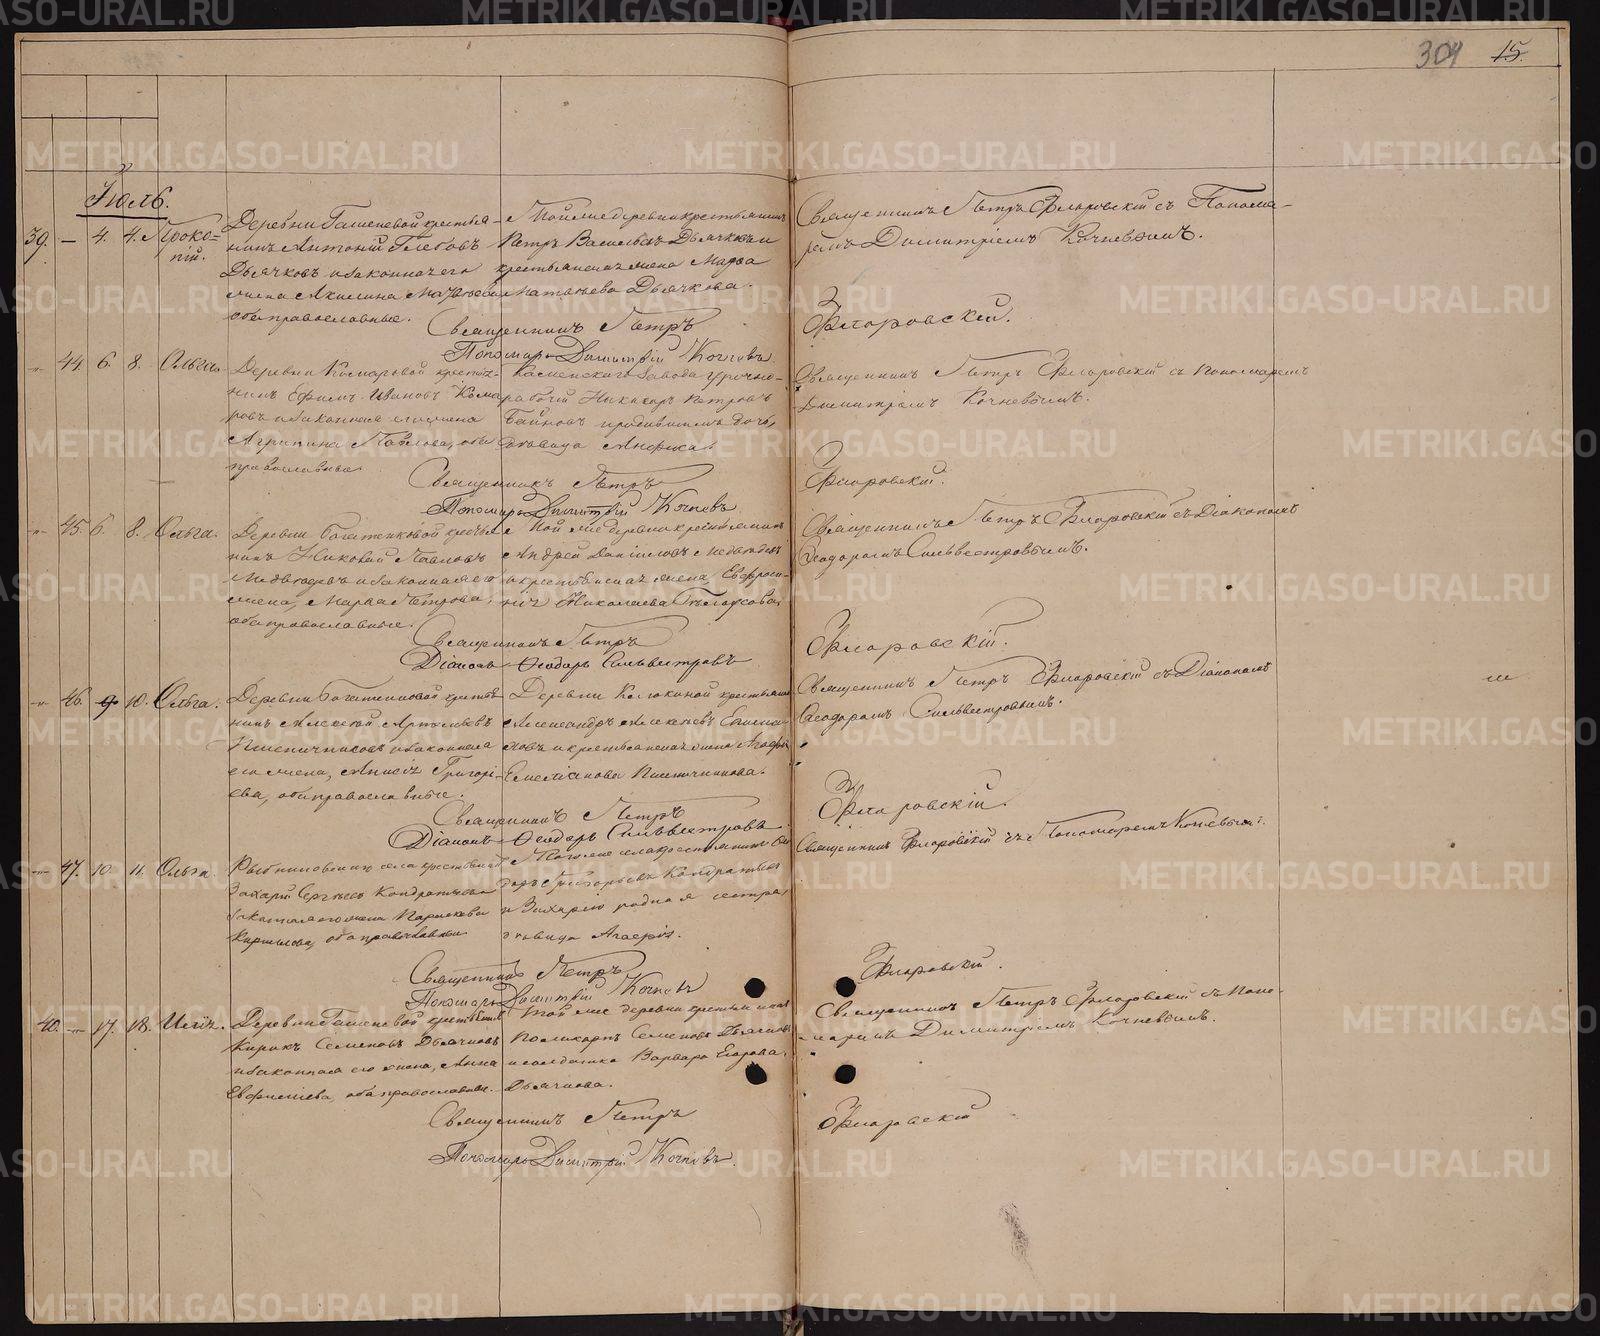 METRIKI.GASO-URAL.RU
304 15.
Іюль.
39. — 4. 4. Проко-
пій.
Деревни Гашеневой крестья-
нинъ Антоній Глебовъ
Дьячковъ и законная его
жена Акилина Матвѣева
оба православные.
Той же деревни крестьянинъ
Петръ Васильевъ Дьячковъ и
крестьянская жена Марѳа
Матвѣева Дьячкова.
Священникъ Петръ Флоровскій съ Понома-
ремъ Димитріемъ Кочневымъ.
Священникъ Петръ Флоровскій.
Пономарь Димитрій Кочневъ
44. 6. 8. Ольга.
Деревни Комаровой крестья-
нинъ Ефимъ Ивановъ Кома-
ровъ и законная его жена
Агрипина Павлова, оба
православные.
Каменскаго Завода урочно-
рабочій Никифоръ Петровъ
дочь,
дѣвица Анфиса.
Священникъ Петръ Флоровскій съ Пономаремъ
Димитріемъ Кочневымъ.
Священникъ Петръ Флоровскій.
Пономарь Димитрій Кочневъ
45. 6. 8. Ольга.
Деревни Богатенковой крестья-
нинъ Николай Павловъ
Медвѣдевъ и законная его
жена, Марѳа Петрова,
оба православные.
Той же деревни крестьянинъ
Андрей Даніиловъ Медвѣдевъ
и крестьянская жена Евфроси-
нія Николаева
Священникъ Петръ Флоровскій съ Діакономъ
Ѳеодоромъ Сильвестровымъ.
Священникъ Петръ Флоровскій.
Діаконъ Ѳеодоръ Сильвестровъ
46. 9 10. Ольга.
Деревни Богатенковой крестья-
нинъ Алексѣй
Пшеничниковъ и законная
его жена, Анисія Григорі-
ева, оба православные.
Деревни крестьянинъ
Александръ Алексѣевъ
и крестьянская жена Агафья
Емеліанова Пшеничникова.
Священникъ Петръ Флоровскій съ Діакономъ
Ѳеодоромъ Сильвестровымъ.
Священникъ Петръ Флоровскій.
Діаконъ Ѳеодоръ Сильвестровъ
47. 10. 11. Ольга.
Рыбниковскаго села крестьянинъ
Захарій Сергѣевъ Кондратьевъ
законная его жена Параскева
Кирилова, оба православные
Того же села крестьянинъ
Григорьевъ Кондратьевъ
и Захарію родная сестра
дѣвица Агафія.
Священникъ Флоровскій съ Пономаремъ Кочневымъ.
Священникъ Петръ Флоровскій.
Пономарь Димитрій Кочневъ
40. 17. 18. Илія.
Деревни Гашеневой крестьянинъ
Кирикъ Семеновъ Дьячковъ
и законная его жена, Анна
Евфиміева, оба православные.
Той же деревни крестьянинъ
Поликарпъ Семеновъ Дьячковъ
и солдатка Варвара Егорова
Дьячкова.
Священникъ Петръ Флоровскій съ Поно-
маремъ Димитріемъ Кочневымъ.
Священникъ Петръ Флоровскій
Пономарь Димитрій Кочневъ.